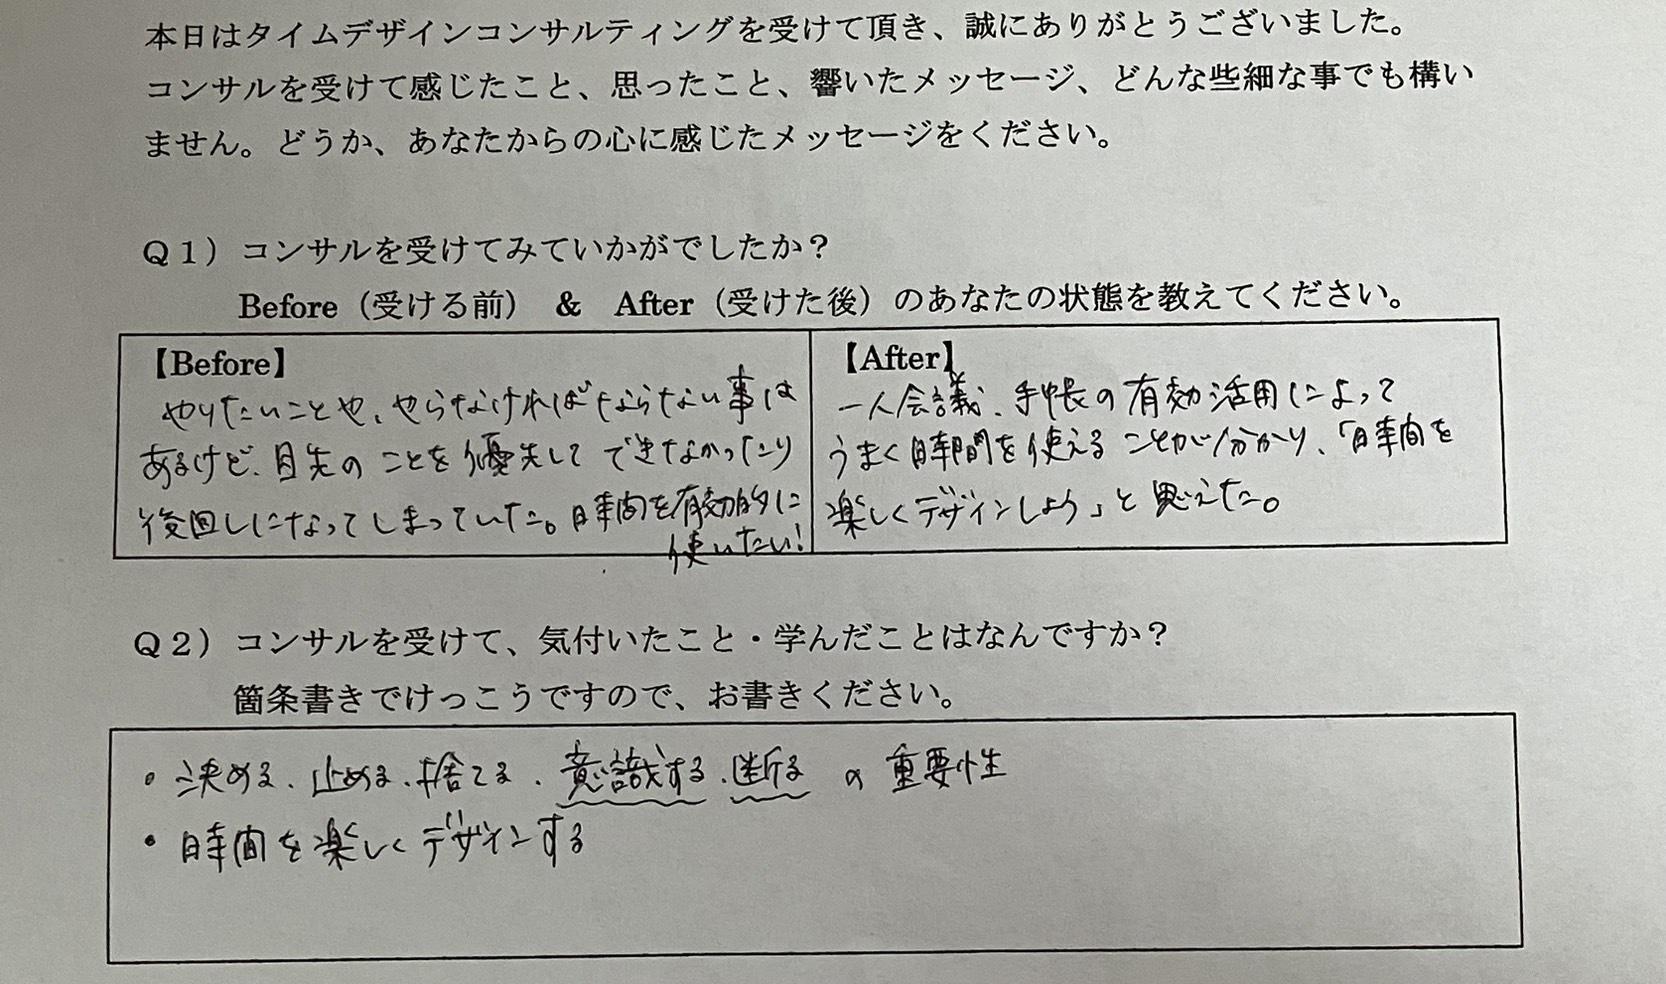 本日はタイムデザインコンサルティングを受けて頂き、誠にありがとうございました。
コンサルを受けて感じたこと、思ったこと、響いたメッセージ、どんな些細な事でも構い
ません。どうか、あなたからの心に感じたメッセージをください。
Q1）コンサルを受けてみていかがでしたか？
Before（受ける前） & After（受けた後）のあなたの状態を教えてください。
【Before】
やりたいことや、やらなければならない事は
あるけど、目先のことを優先してできなかったり
後回しになってしまっていた。時間を有効的に
使いたい！
【After】
一人会議、手帳の有効活用によって
うまく時間を使えることが分かり、「時間を
楽しくデザインしよう」と思えた。
Q2）コンサルを受けて、気付いたこと・学んだことはなんですか？
箇条書きでけっこうですので、お書きください。
・決める、止める、捨てる、意識する、断るの重要性
・時間を楽しくデザインする